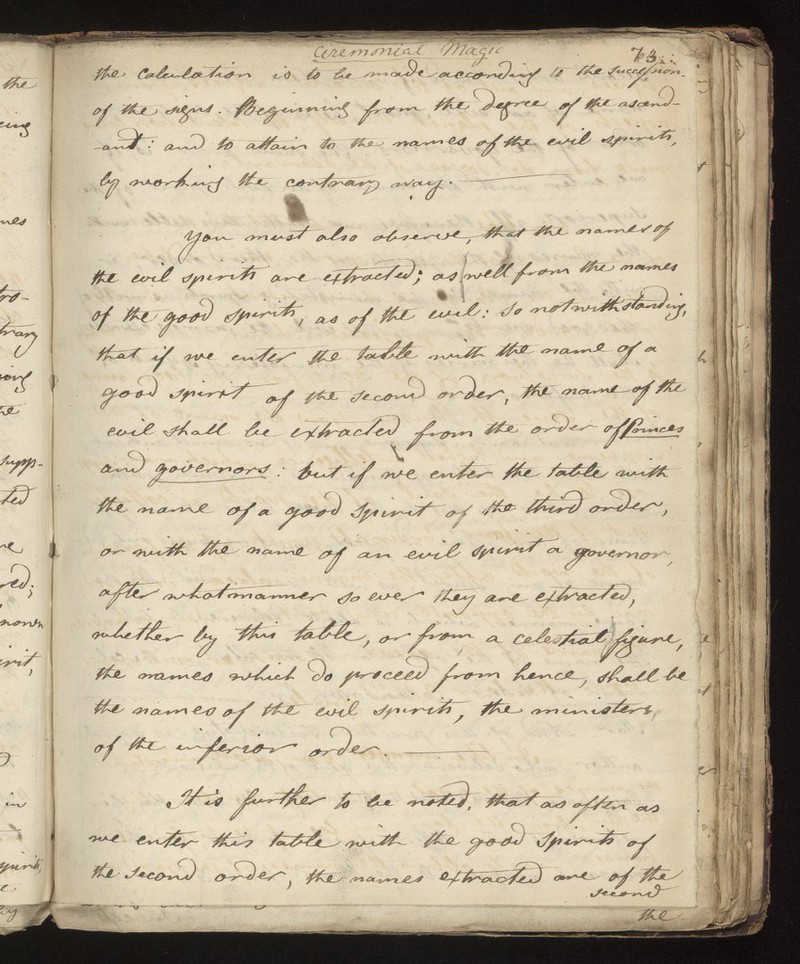 Ceremonial Magic 73
the calculation is to be made according to the succession.
of the signs. Beginning from the degree of the ascend-
-ant: and to attain to the names of the evil spirits,
by working the contrary way.
You must also observe, that the names of
the evil spirits are extracted; as well from the names
of the good spirits, as of the evil: so notwithstanding,
that if we enter the table with the name of a
good spirit of the second order, the name of the
evil shall be extracted from the order of Princes
and governors: but if we enter the table with
the name of a good spirit of the third order,
or with the name of an evil spirit a governor,
after what manner so ever they are extracted,
whether by this table, or from a celestial figure,
the names which do proceed from hence, shall be
the names of the evil spirits, the ministers
of the inferior order.
It is further to be noted, that as often as
we enter this table with the good spirits of
the second order, the names extracted are of the
second
the